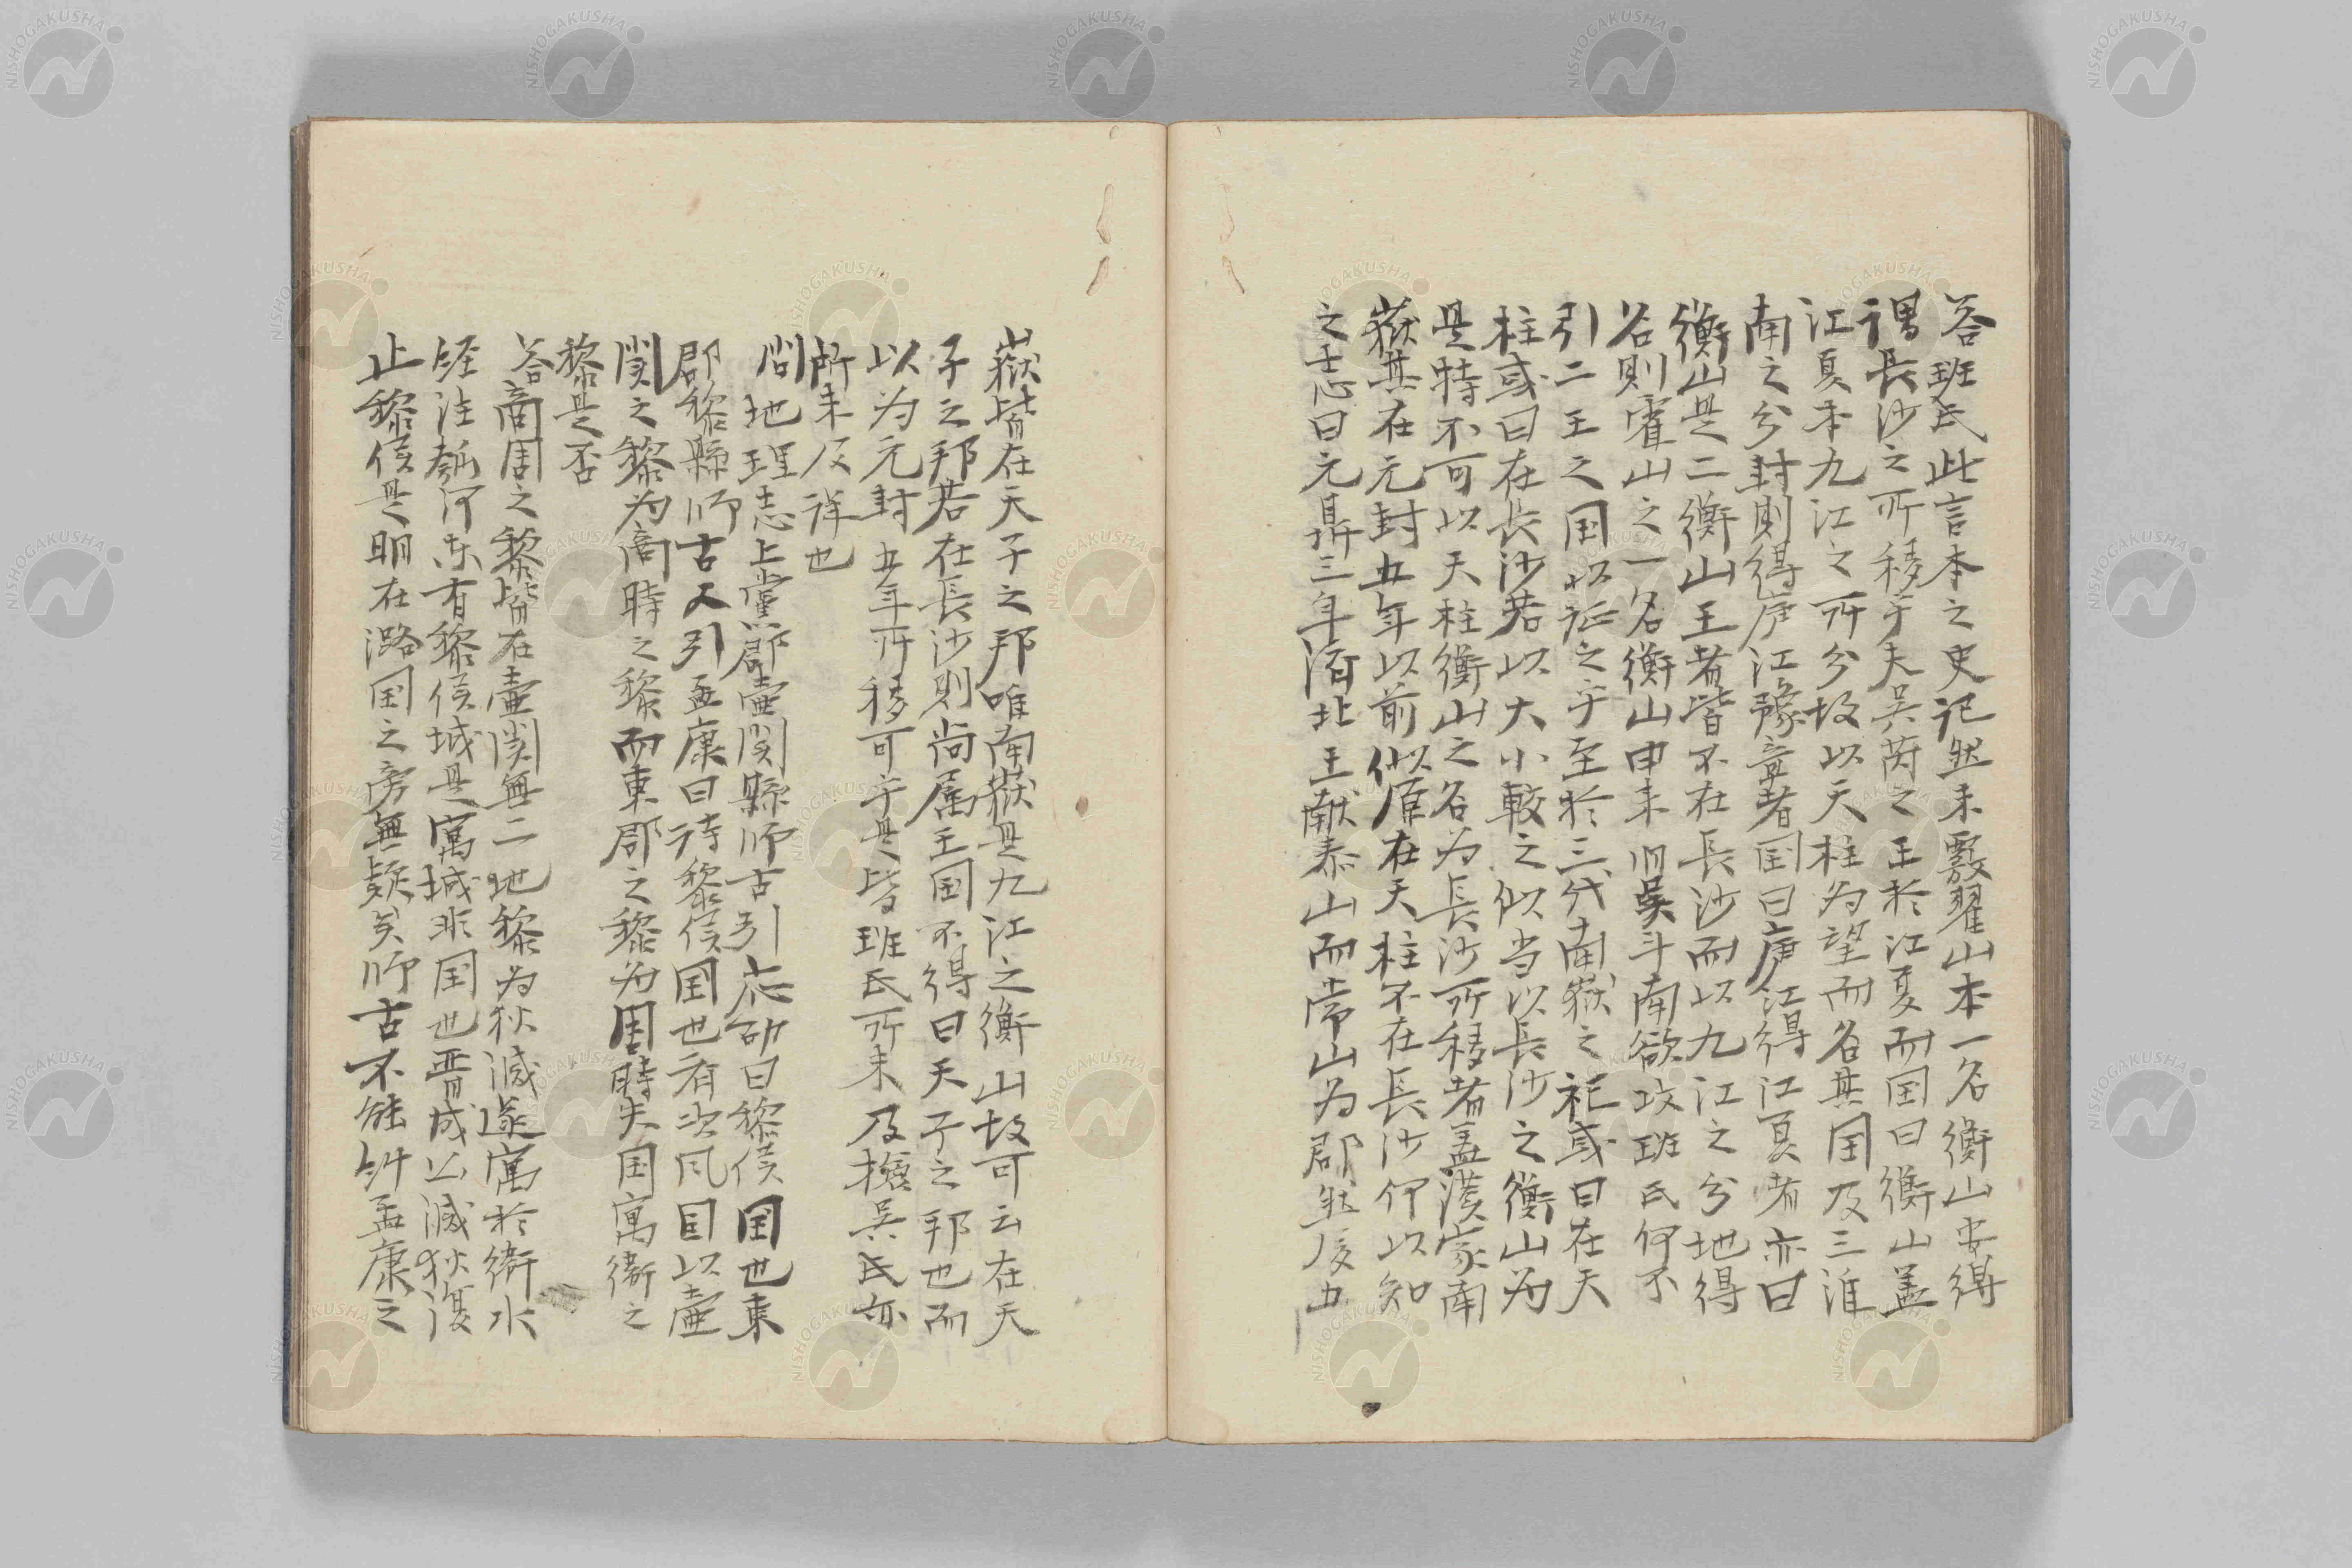 答班氏此言本之史記然未覈霍山本一名衡山安得
謂長沙之所移乎夫吳芮之王於江夏而国曰衡山盖
江夏本九江之所分故以天柱为望而名其国及三淮
南之分封則得庐江豫章者国曰庐江得江夏者亦曰
衡山是二衡山王者皆不在長沙而以九江之分地得
名則霍山之一名衡山由来旧矣斗南欲攻班氏何不
引二王之国以证之乎至於三代南嶽之祀或曰在天
柱或曰在長沙若以大小較之似当以長沙之衡山为
是特不可以天柱衡山之名为長沙所移者盖漢家南
嶽其在元封五年以前似原在天柱不在長沙何以知
之志曰元鼎三年済北王献泰山而常山为郡然後五
嶽皆在天子之邦唯南嶽是九江之衡山故可云在天
子之邦若在長沙則尚属王国不得曰天子之邦也而
以为元封五年所移可乎是皆班氏所未及擴吳氏亦
所未及詳也
問地理志上黨郡壷関縣师古引応劭曰黎侯国也東
郡黎縣师古又引孟康曰诗黎侯国也有次风目以壷
関之黎为商時之黎而東郡之黎为周時失国寓衛之
黎是否
答商周之黎皆在壷関無二地黎为狄滅遂寓於衛水
経注瓠河东有黎侯城是寓城非国也晋成公滅狄復
止黎侯是明在潞国之旁無疑矣师古不能糾孟康之